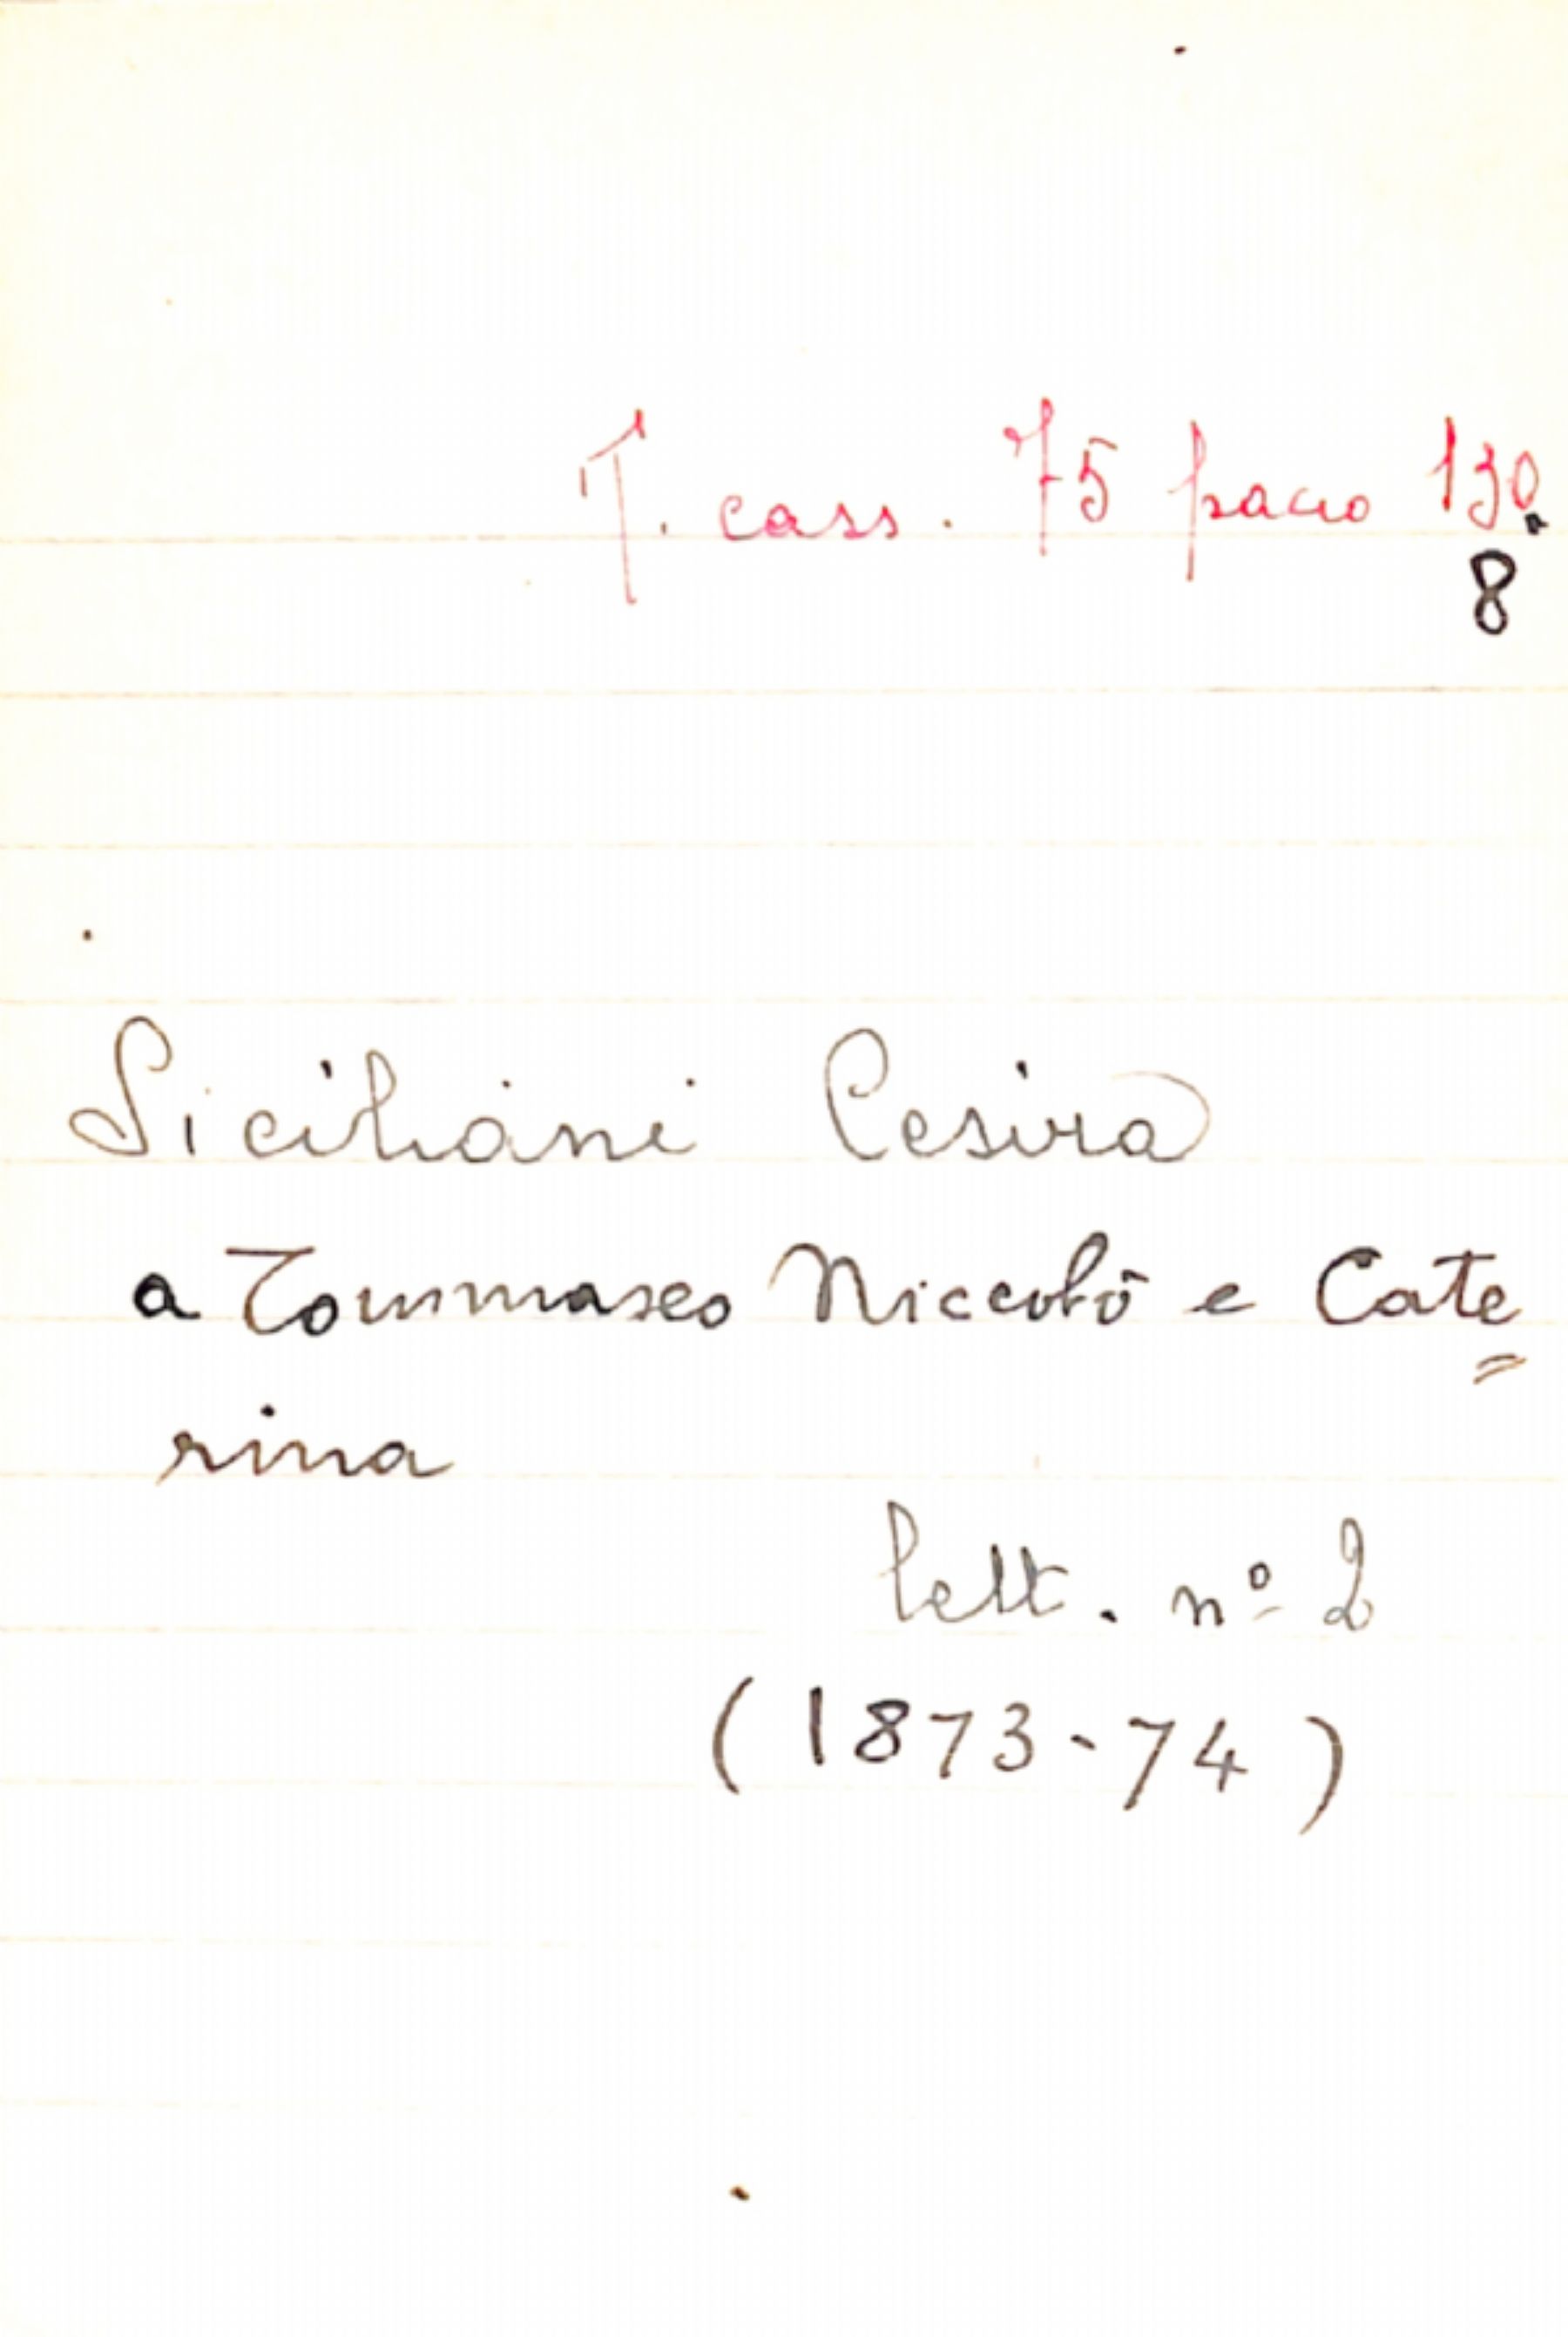 T. cass. 75 pacco 130.
8
Siciliani Cesira
a Tommaseo Niccolò e Cate
=
rina
lett. nº 2
(1873-74)